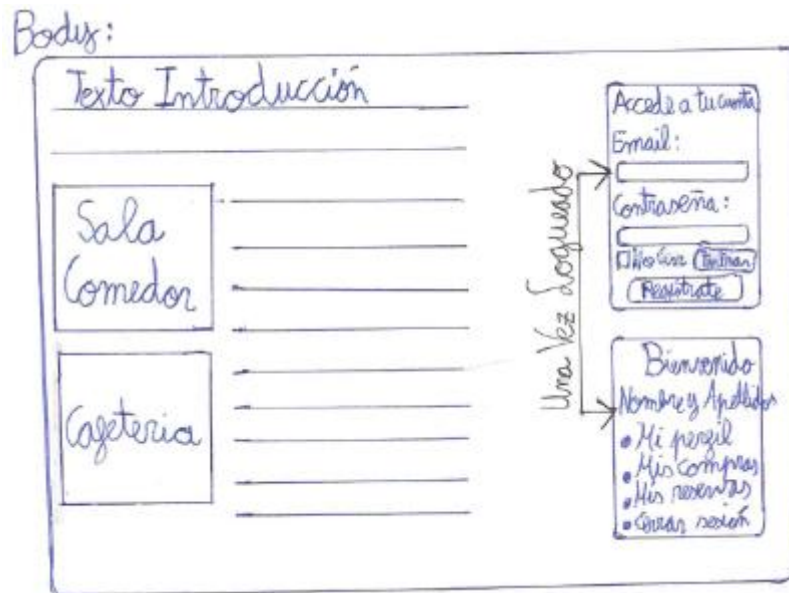 Body:
Texto Introducción
Sala
Comedor
Cafeteria
Una Vez Logueado
Accede a tu cuenta
Email:
Contraseña:
Entrar
Registrate
Bienvenido
Nombre y Apellidos
• Mi perfil
• Mis compras
• Mis reservas
• Cerrar sesión